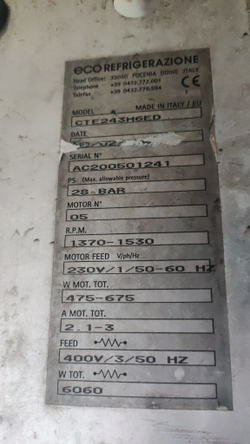 ECO REFRIGERAZIONE
Head Office: 33050 POCENIA UDINE ITALY
Telephone +39 0432.772.001
Telefax +39 0432.779.594
CE
MODEL MADE IN ITALY / EU
CTE243H6ED
DATE
SERIAL N°
AC200501241
PS (Max. allowable pressure)
28 BAR
MOTOR N°
05
R.P.M.
1370-1530
MOTOR FEED V/ph/Hz
230V/1/50-60 HZ
W MOT. TOT.
475-675
A MOT. TOT.
2.1-3
FEED
400V/3/50 HZ
W TOT.
6060